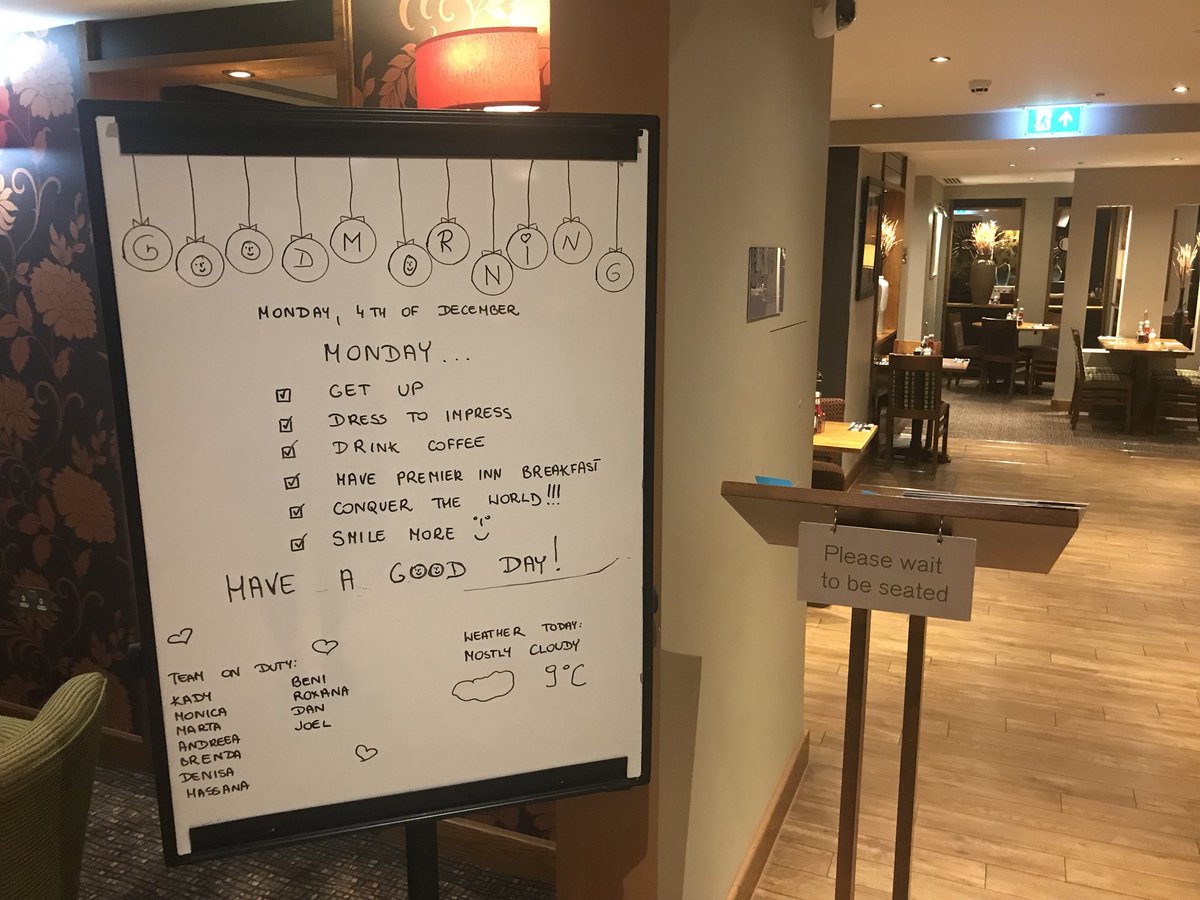 GOODMORNING
MONDAY, 4TH OF DECEMBER
MONDAY...
GET UP
DRESS TO IMPRESS
DRINK COFFEE
HAVE PREMIER INN BREAKFAST
CONQUER THE WORLD!!!
SMILE MORE
HAVE A GOOD DAY!
WEATHER TODAY:
MOSTLY CLOUDY
9°C
TEAM ON DUTY:
KADY
MONICA
MARTA
ANDREEA
BRENDA
DENISA
MASSANA
BENI
ROXANA
DAN
JOEL
Please wait
to be seated